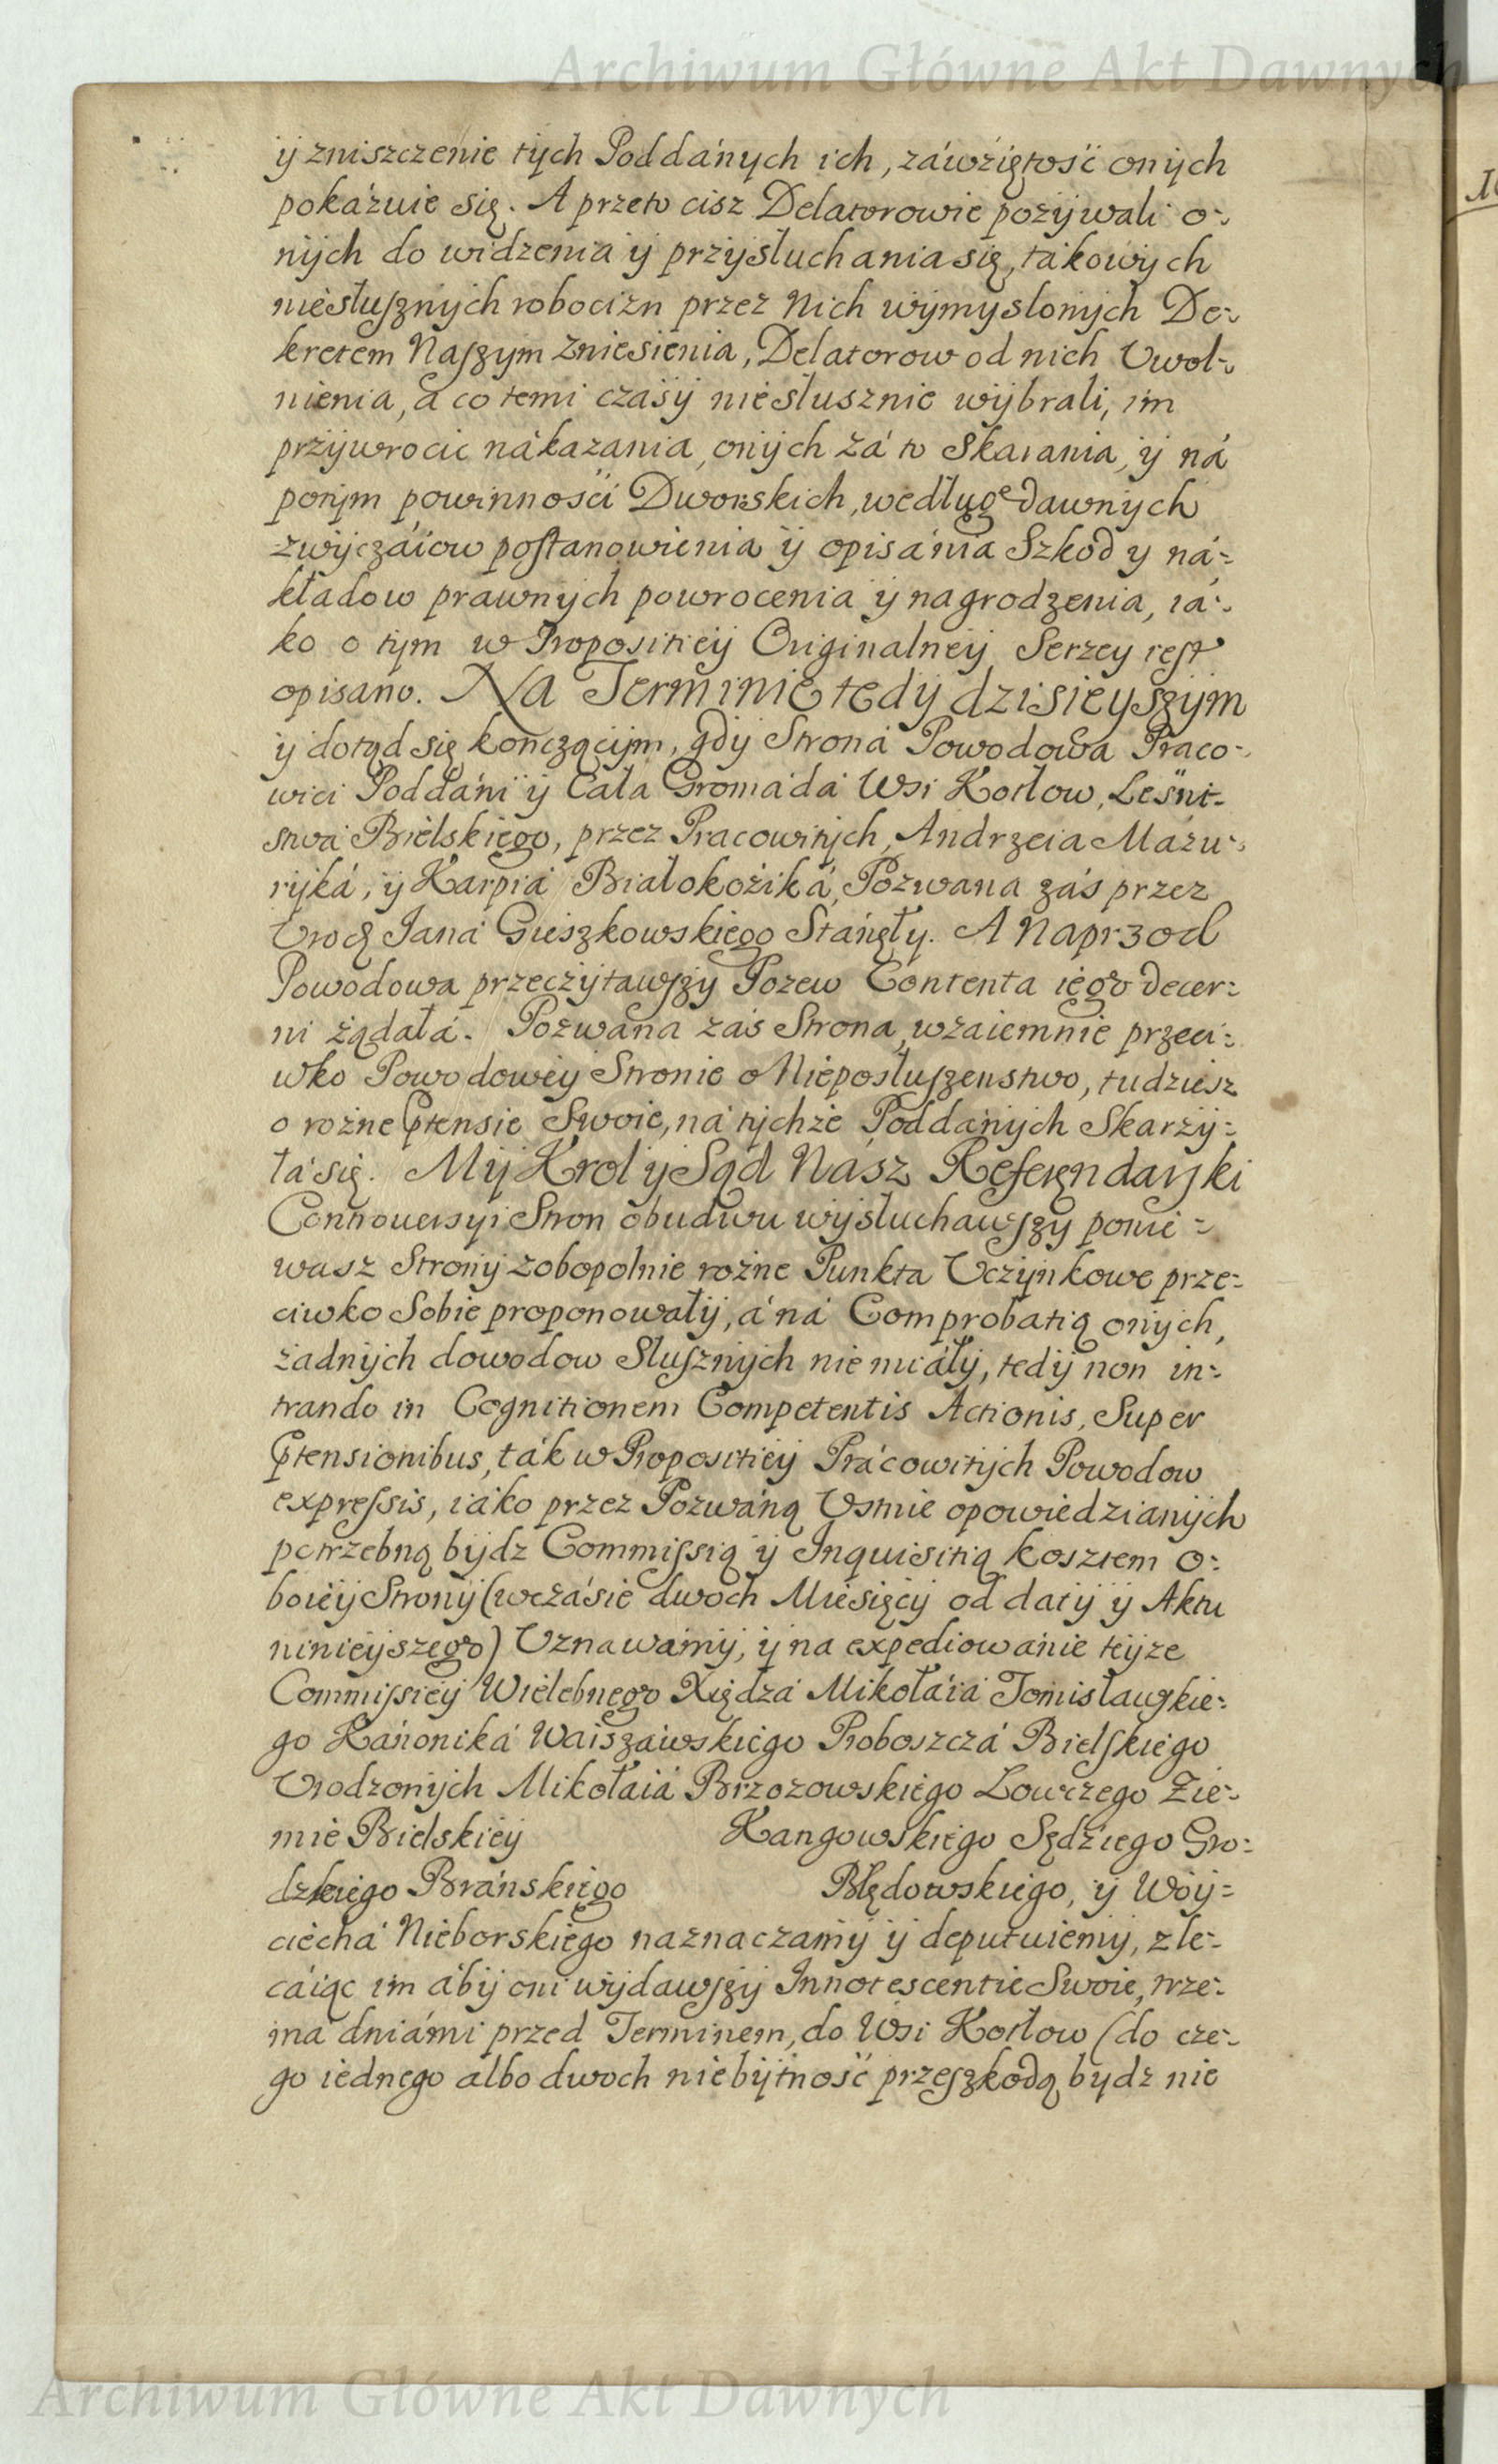 Archiwum Główne Akt Dawnych
ÿ zniszczenie tÿch Poddánÿch ich, záwziętość onÿch
pokázuie się. A przeto cisz Delatorowie pozÿwali o-
nÿch do widzenia ÿ przÿsłuchania się, tákowÿch
niesłusznÿch robocizn przez Nich wÿmÿslonÿch De-
kretem Naszÿm Zniesienia, Delatorow od nich Uwol-
nienia, á co temi czasÿ niesłusznie wÿbrali, im
przÿwrocic nákazania, onÿch zá to Skarania, ÿ ná
potÿm powinnośći Dworskich, według dawnÿch
zwÿczáiow postanowienia ÿ opisánia Szkod y ná=
kładow prawnÿch powrocenia ÿ nagrodzenia, iá-
ko o tÿm w Propositieÿ Originalneÿ Serzey iest
opisano. Na Terminie tedÿ dzisieyszÿm
ÿ dotąd się kończącÿm, gdÿ Strona Powodowa Praco-
wici Poddáni ÿ Cała Gromádá Wsi Kotłow, Leśni-
stwa Bielskiego, przez Pracowitÿch, Andrzeia Mázu-
rÿká, ÿ Karpiá Białokoziká, Pozwana zás przez
Urodz Janá Guszkowskiego Stánęły. A Naprzod
Powodowa przeczÿtawszÿ Pozew Contenta iego decer=
ni żądałá. Pozwana zás Strona, wzaiemnie przeci=
wko Powodoweÿ Stronie o Nieposłuszenstwo, tudziesz
o rożne Ptensie Swoie, ná tÿchże Poddánÿch Skarżÿ=
łá się. Mÿ Krol ÿ Sąd Nász Referendarski
Controuersyi Stron obudwu wÿsłuchawszÿ ponie=
wasz Stronÿ zobopolnie rożne Punkta Uczÿnkowe prze=
ciwko Sobie proponowałÿ, á ná Comprobatią onÿch,
żadnÿch dowodow Słusznÿch nie miáłÿ, tedÿ non in=
trando in Cognitionem Competentis Actionis, Super
Ptensionibus, ták w Propositieÿ Prácowitÿch Powodow
expressis, iáko przez Pozwáną Ustnie opowiedzianÿch
potrzebną bÿdz Commissią ÿ Inquisitią kosztem o=
boieÿ Stronÿ (w czásie dwoch Miesięcÿ od datÿ ÿ Aktu
ninieÿszego) Uznawamÿ, ÿ na expediowanie teÿze
Commissieÿ Wielebnego Xiędzá Mikołáiá Tomisławskie=
go Kánoniká Warszáwskiego Proboszczá Bielskiego
Urodzonÿch Mikołaiá Brzozowskiego Łowczego Zie-
mie Bielskieÿ Kangowskiego Sędziego Gro=
dzkiego Bránskiego Błędowskiego, ÿ Woÿ=
ciechá Nieborskiego naznaczamÿ ÿ deputuiemÿ, zle-
cáiąc im ábÿ oni wÿdawszÿ Innotescentie Swoie, trze-
ma dniámi przed Terminem, do Wsi Kotłow (do cze-
go iednego albo dwoch niebÿtność przeszkodą bydz nie
Archiwum Główne Akt Dawnych